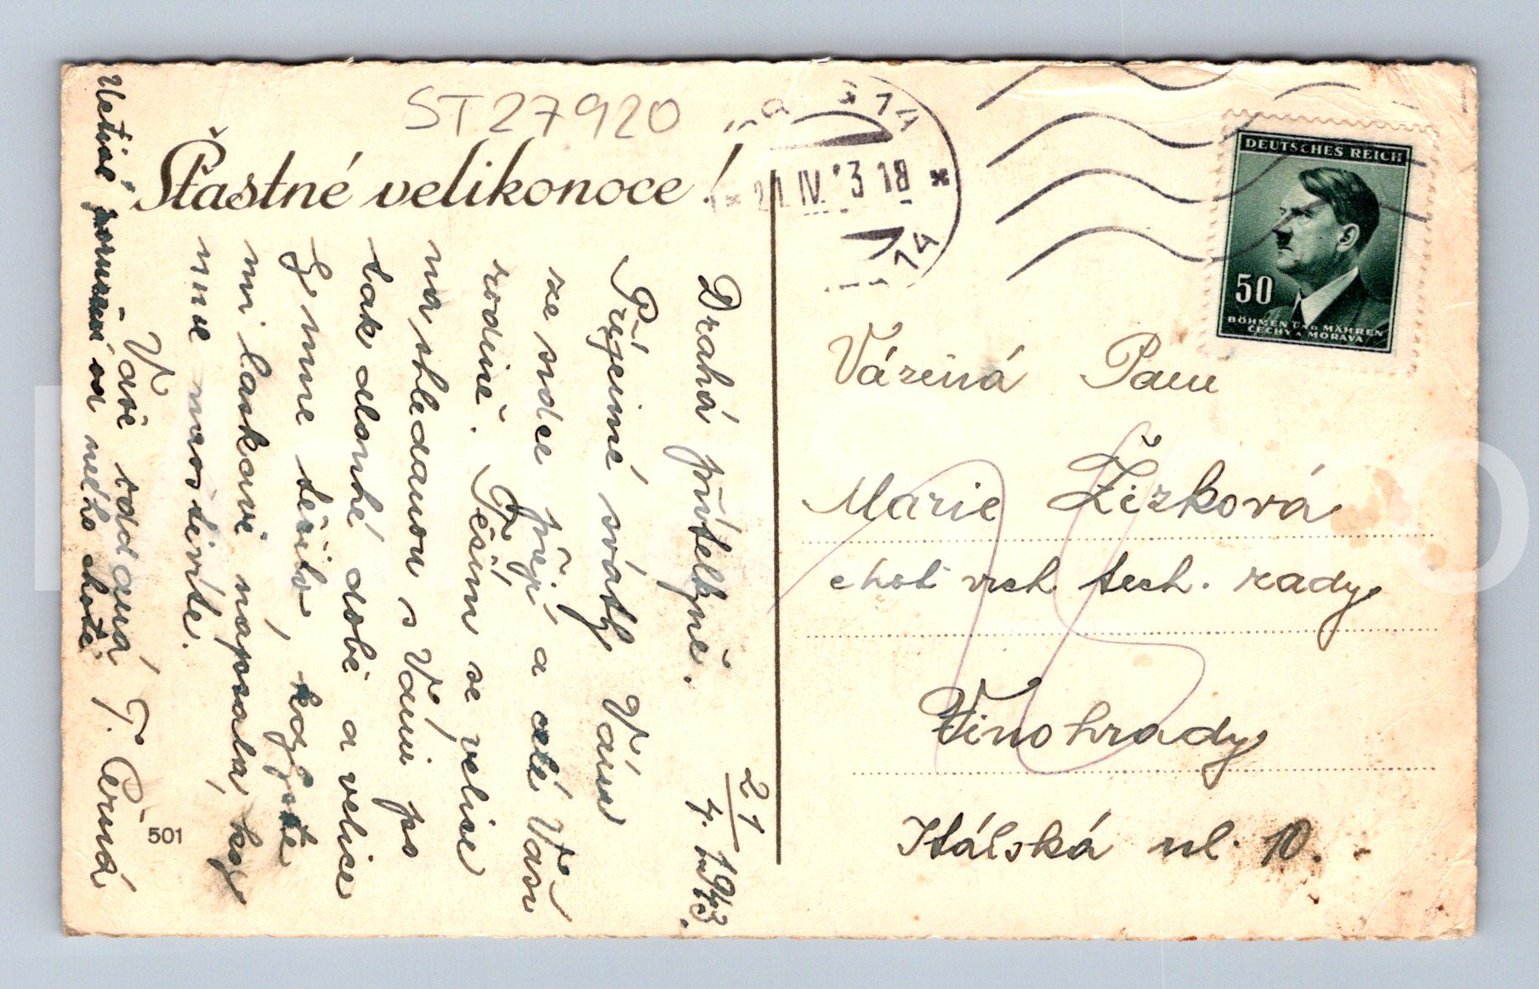 ST27920
Šťastné velikonoce!
21/4. 1943.
Drahá přítelkyně.
Příjemné svátky Vám
ze srdce přeji a celé Vaší
rodině. Těším se velice
na shledanou s Vámi po
tak dlouhé době a velice
by mne těšilo, kdybyste
mi laskavě napsala, kdy
mne navštívíte.
Vaše oddaná T. Černá
Uctivé poručení od mého chotě.
501
* 21. IV. 43 18 *
14
DEUTSCHES REICH
50
BÖHMEN UND MÄHREN
ČECHY A MORAVA
Vázená Paní
Marie Žižková
choť vrch tech. rady
Vinohrady
Itálská ul. 10.